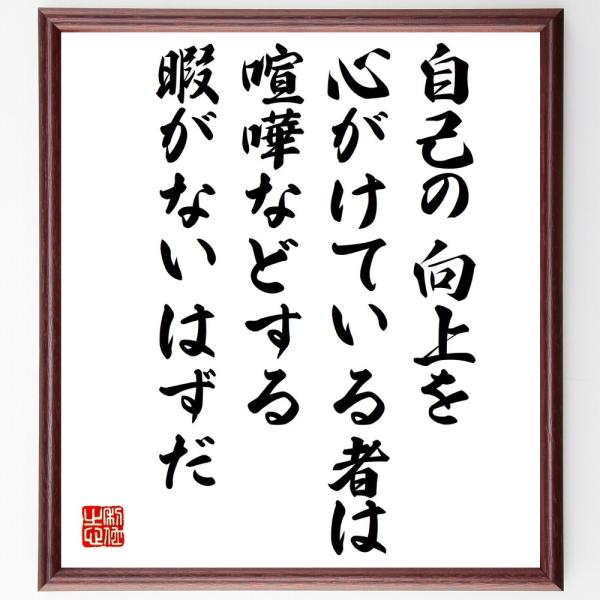 自己の向上を
心がけている者は
喧嘩などする
暇がないはずだ